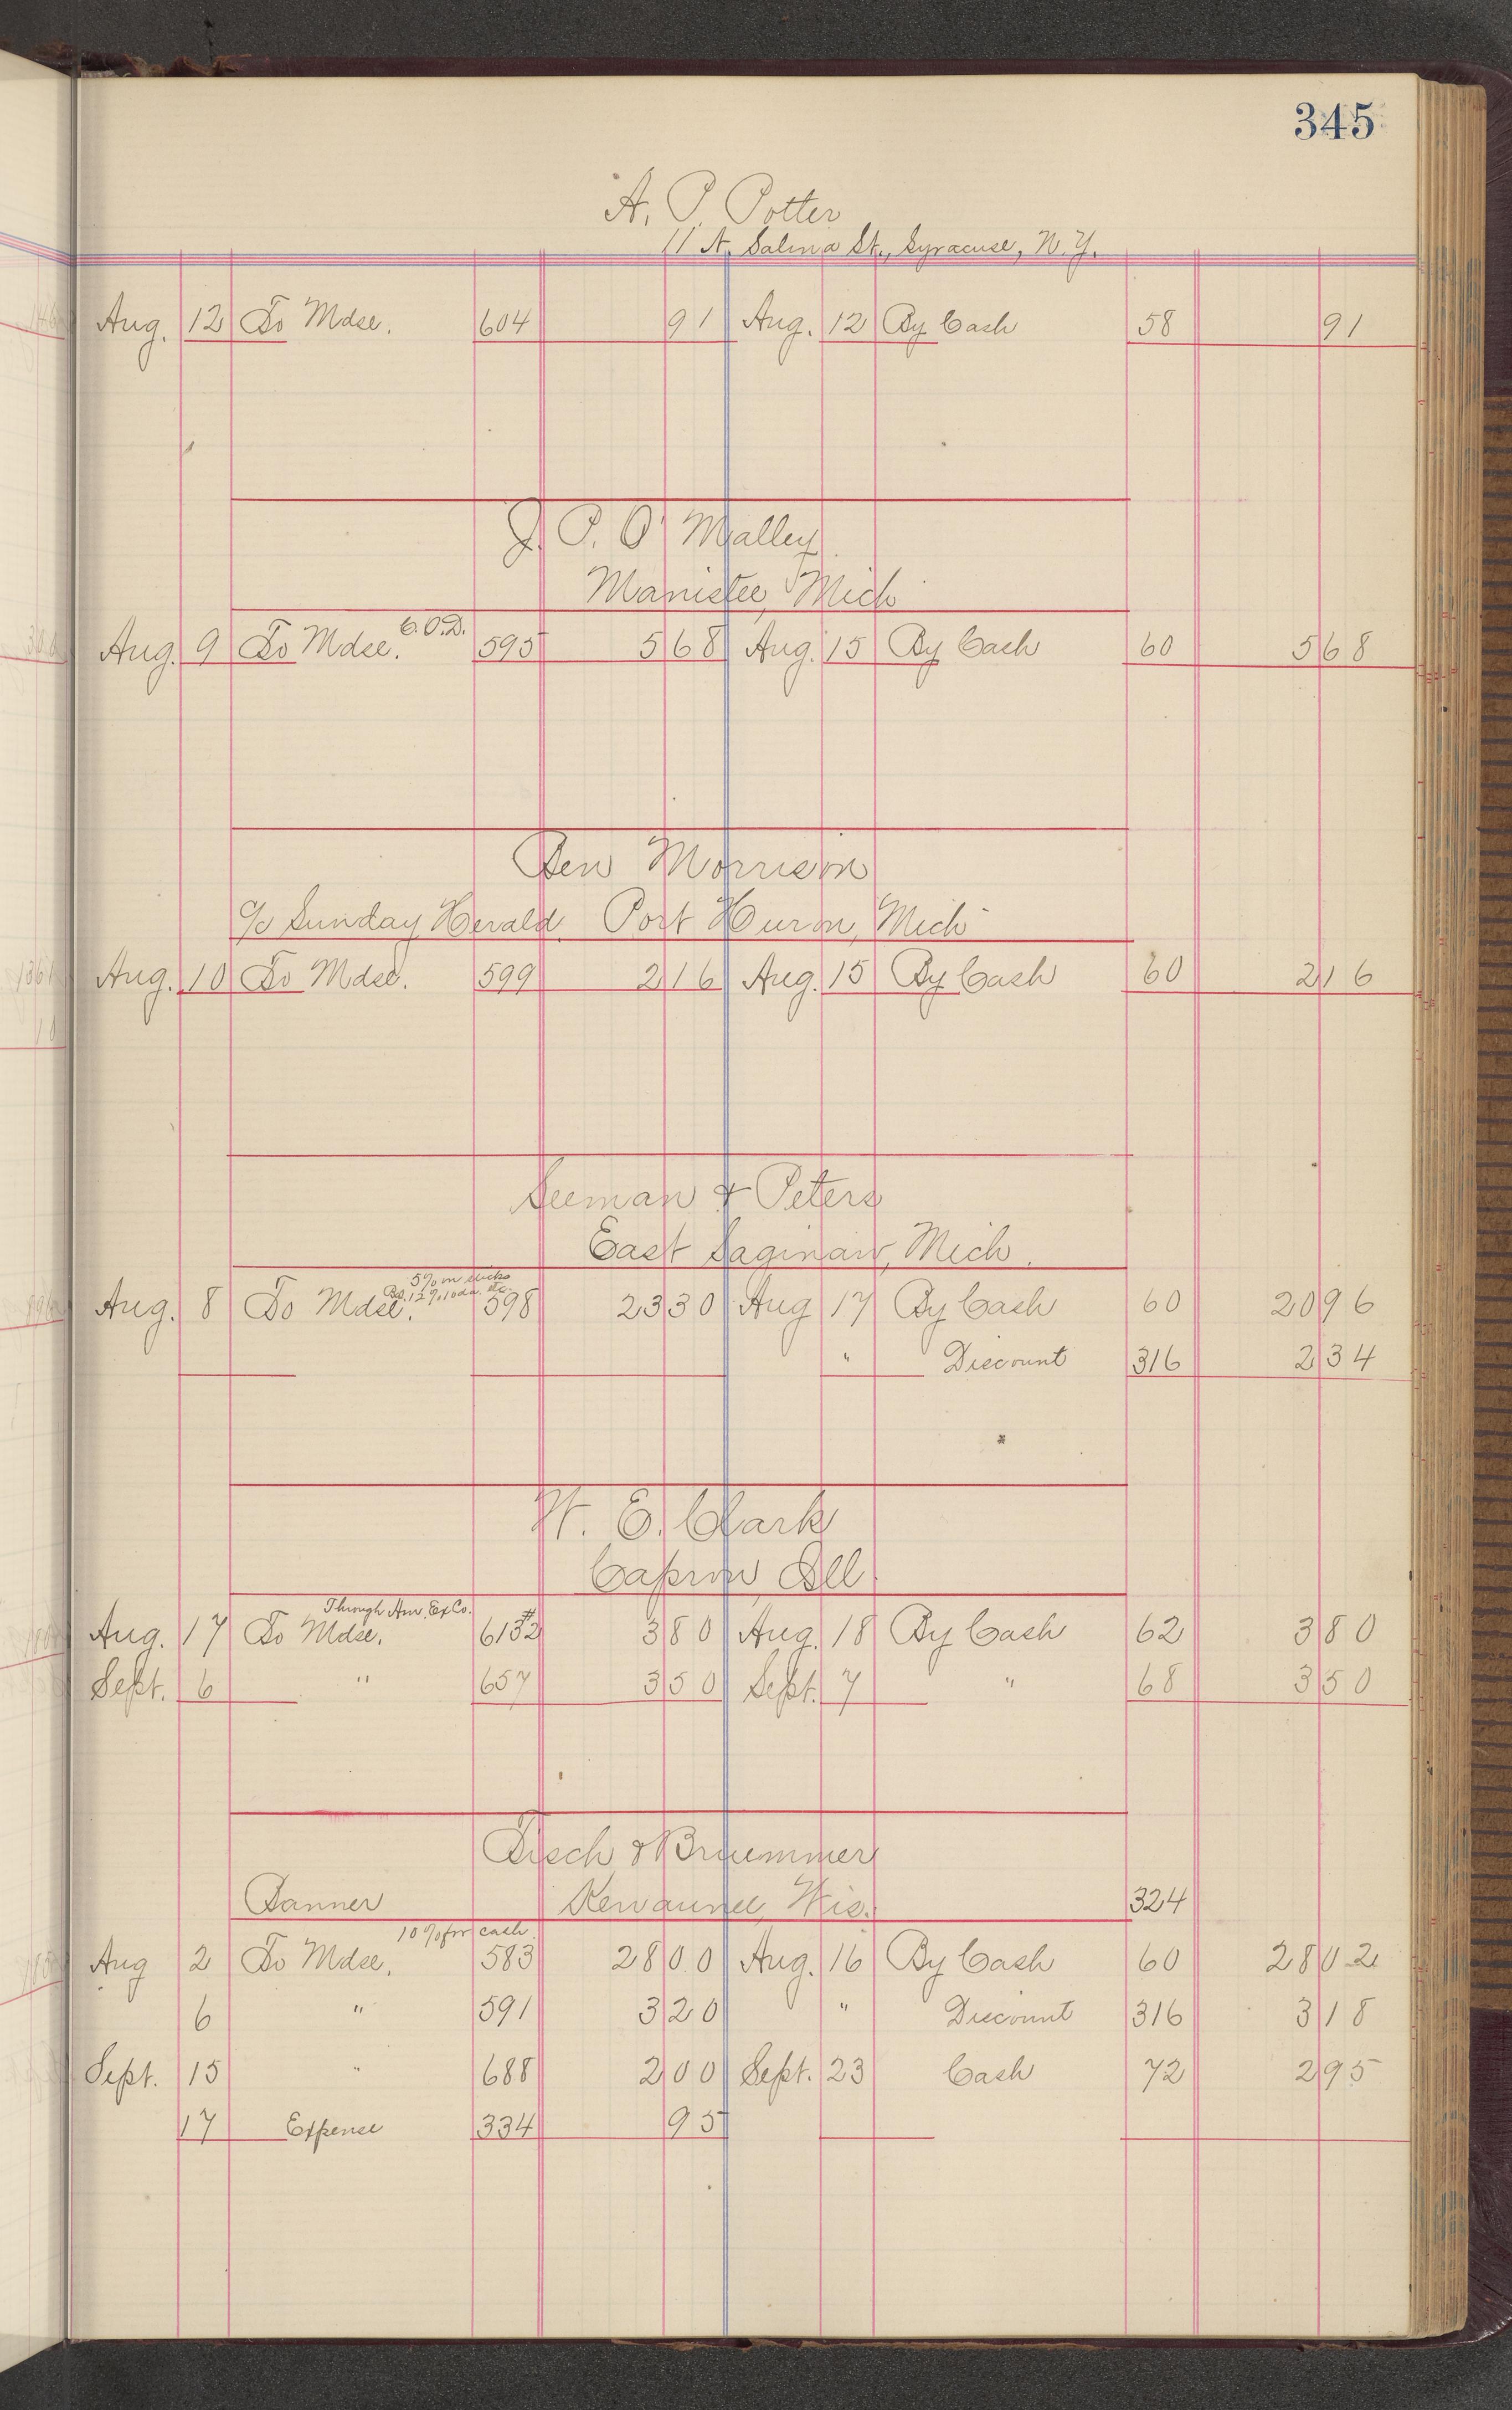 345
A. P. Potter
11 N. Salina St., Syracuse, N. Y.
Aug. 12 To Mdse. 604 91 Aug. 12 By Cash 58 91
J. P. O'Malley
Manistee, Mich
C.O.D.
Aug. 9 To Mdse. 595 5 68 Aug. 15 By Cash 60 5 68
Ben Morrison
c/o Sunday Herald. Port Huron, Mich
Aug. 10 To Mdse. 599 2 16 Aug. 15 By Cash 60 2 16
Seeman & Peters
East Saginaw, Mich.
5% on sticks
12% 10 da.
Aug. 8 To Mdse. 598 23 30 Aug 17 By Cash 60 20 96
" Discount 316 2 34
W. E. Clark
Capron, Ill.
Through Am. Ex Co.
Aug. 17 To Mdse. 613 #2 3 80 Aug. 18 By Cash 62 3 80
Sept. 6 " 657 3 50 Sept. 7 " 68 3 50
Tisch & Bruemmer
Banner Kewaunee, Wis. 324
10% for cash.
Aug 2 To Mdse. 583 28 00 Aug. 16 By Cash 60 28 02
6 " 591 3 20 " Discount 316 3 18
Sept. 15 " 688 2 00 Sept. 23 Cash 72 2 95
17 Expense 334 95